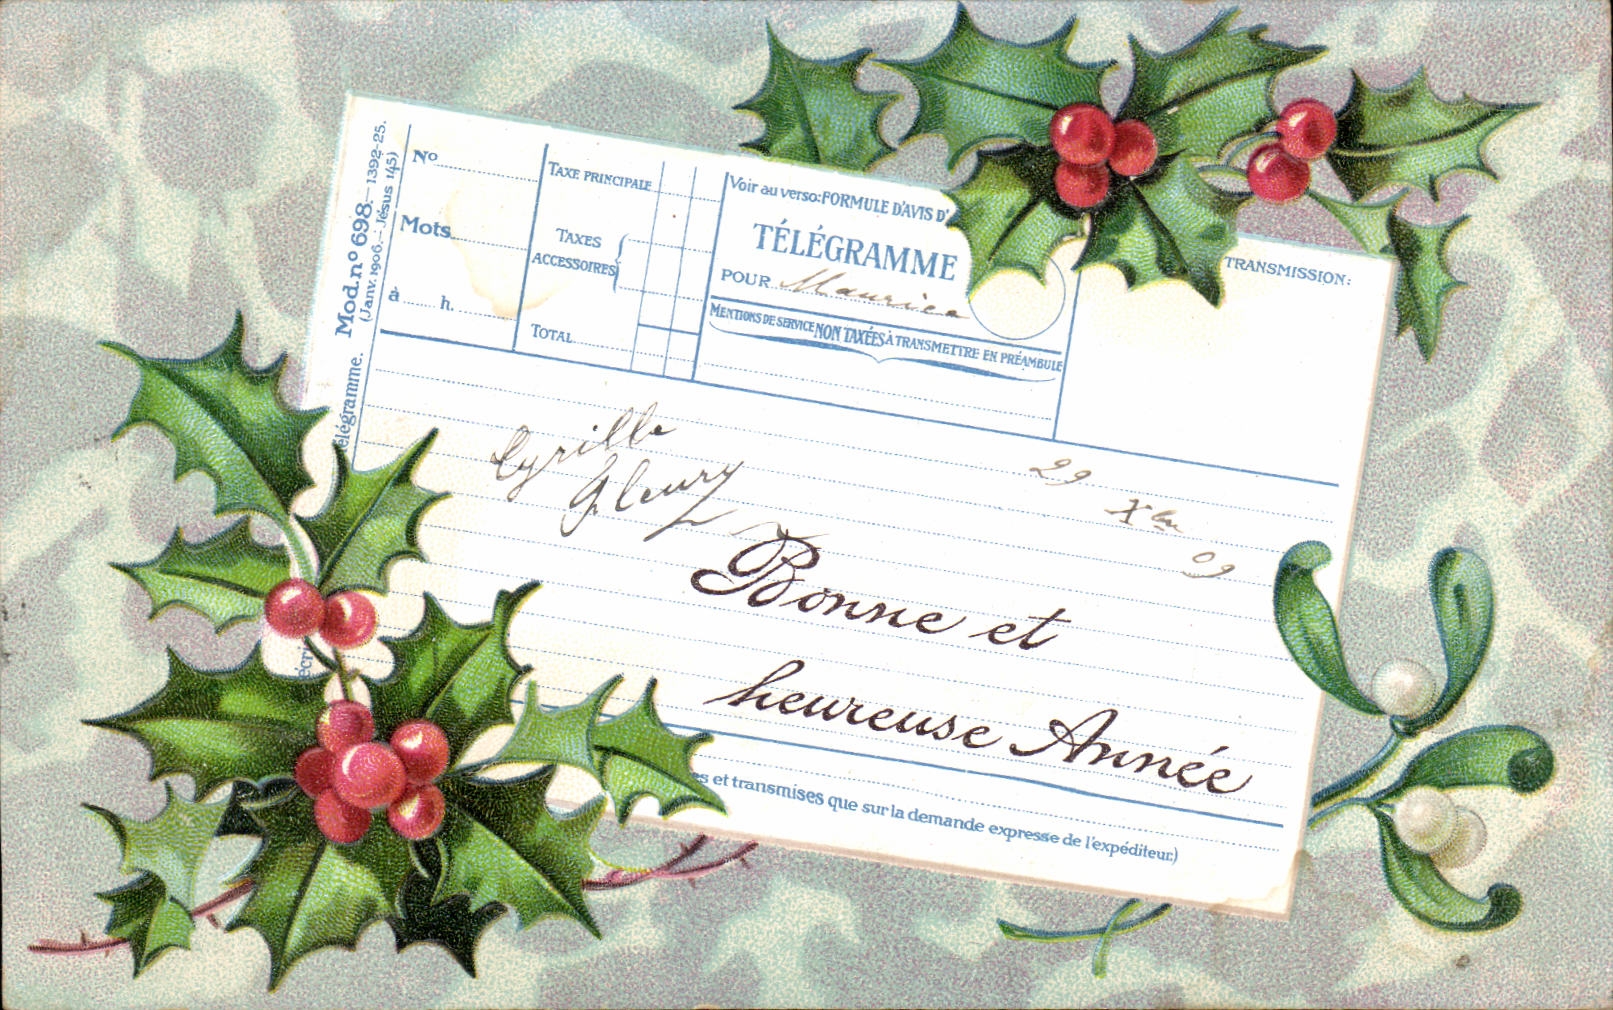 Mod. nº 698. _ 1392-25.
(Janv. 1906._Jésus 145)
élégramme.
écri
Nº
Mots
à h.
TAXE PRINCIPALE
TAXES
ACCESSOIRES
TOTAL
Voir au verso: FORMULE D'AVIS D'
TÉLÉGRAMME
POUR Maurice
MENTIONS DE SERVICE NON TAXÉES À TRANSMETTRE EN PRÉAMBULE
TRANSMISSION:
Cyrille
Fleury
29
Xbre
09
Bonne et
heureuse Année
es et transmises que sur la demande expresse de l'expéditeur.)